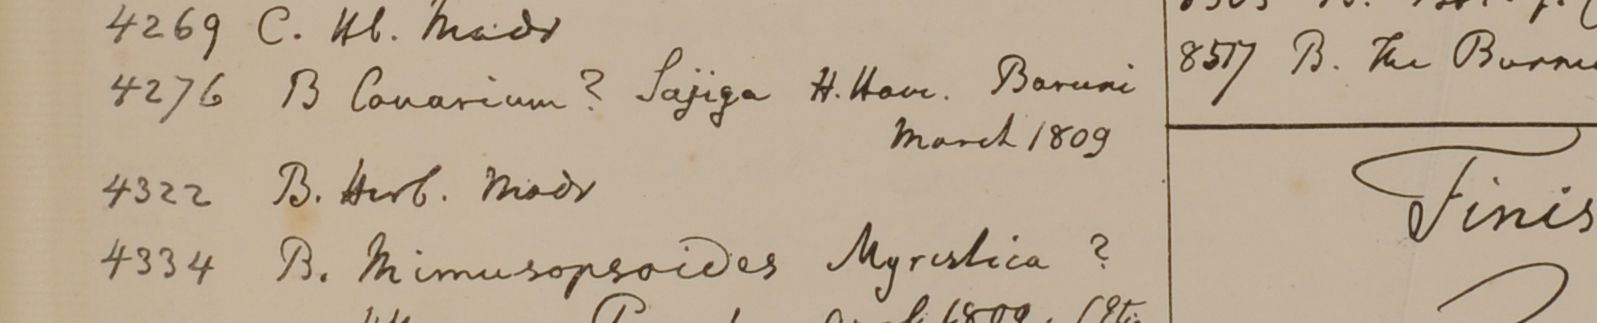 4269 C. Hb. Madr
4276 B Conarium? Sajiga H. Ham. Baruni
March 1809
4322 B. Herb. Madr
4334 B. Mimusopsoides Myristica ?
1809.
8517 B. The
Finis